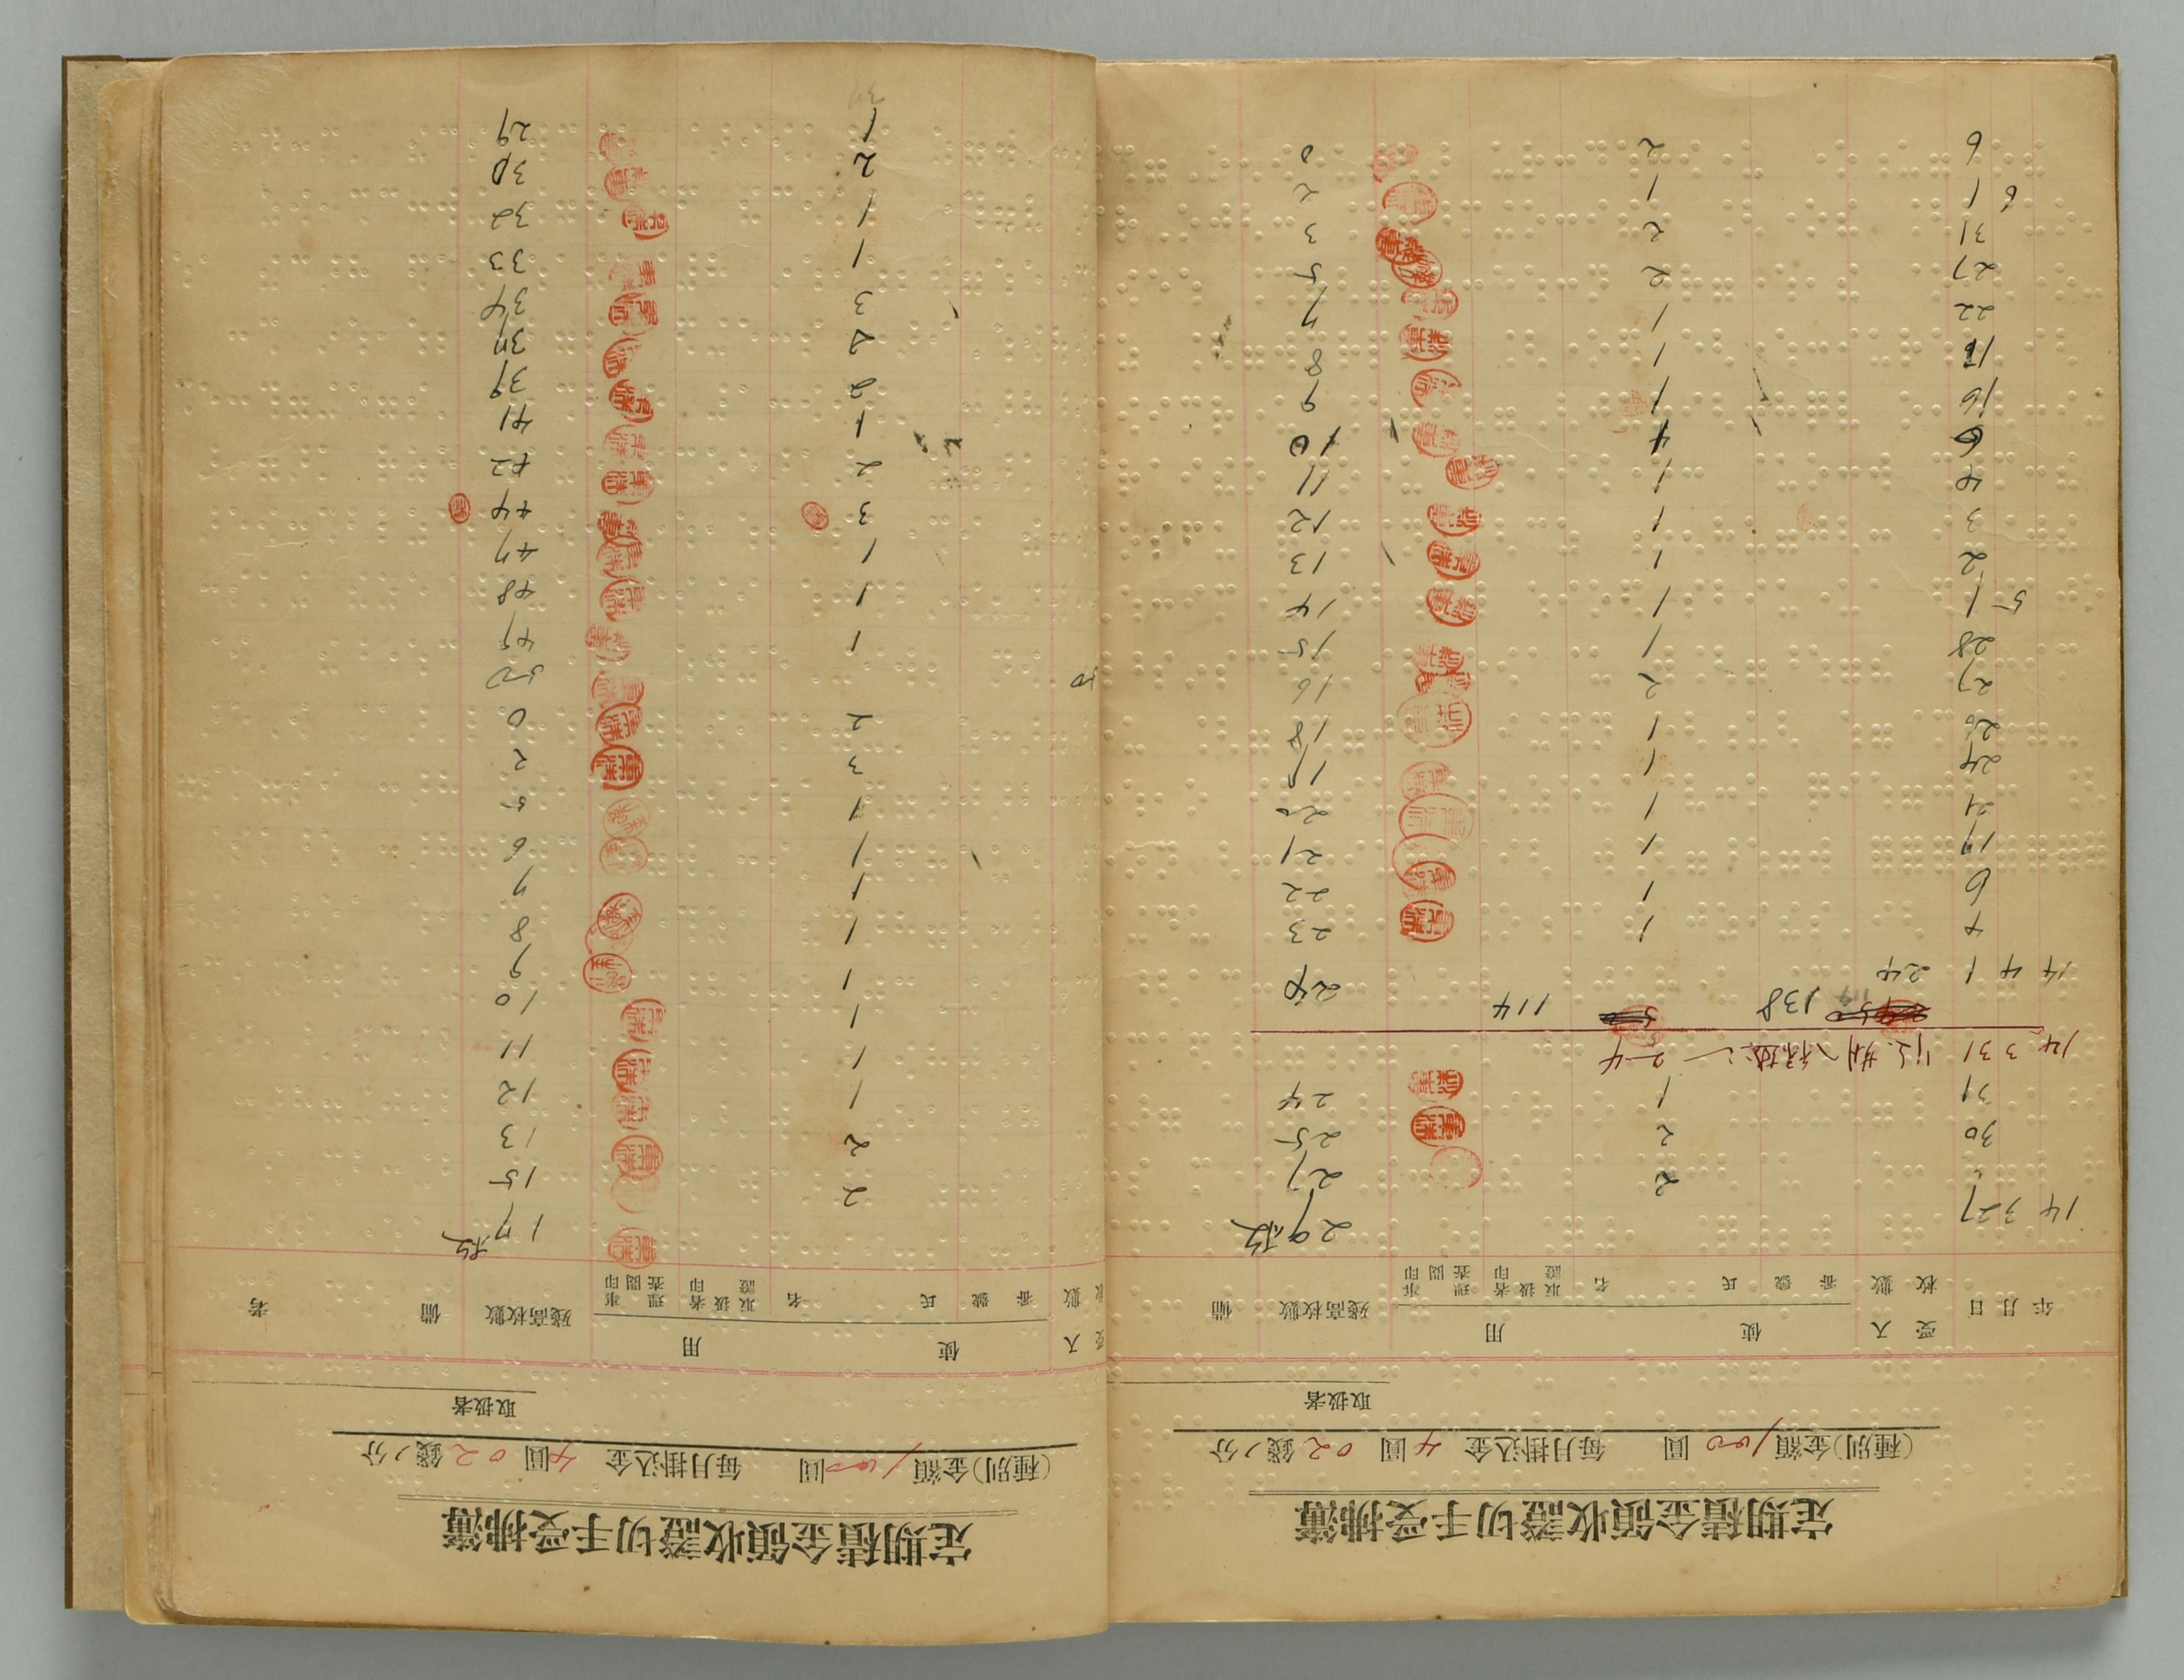 定期積金領收證切手受拂簿
(種別)金額 100 圓 每月掛込金 4 圓 02 錢ノ分
取扱者
受入 使用
年 月 日 枚數 番號 氏名 取扱者證印 理事査閲印 殘高枚數 備
14 3 27 29枚
2 27
30 2 25
31 1 24
14 3 31 繰越シ 24
138 114
14 4 1 24 24
4 1 23
6 1 22
17 1 21
21 1 20
24 1 19
26 1 18
27 2 16
28 1 15
5 1 1 14
2 1 13
3 1 12
4 1 11
6 1 10
16 1 9
17 1 8
22 1 7
27 2 5
31 2 3
6 1 1 2
6 2 0
定期積金領收證切手受拂簿
(種別)金額 100 圓 每月掛込金 4 圓 02 錢ノ分
取扱者
受入 使用
枚數 番號 氏名 取扱者證印 理事査閲印 殘高枚數 備考
17枚
2 15
2 13
1 12
1 11
1 10
1 9
1 8
1 7
1 6
1 5
3 2
2 0
50 50
1 49
1 48
1 47
3 44
2 42
1 41
2 39
2 37
3 34
1 33
1 32
2 30
1 29